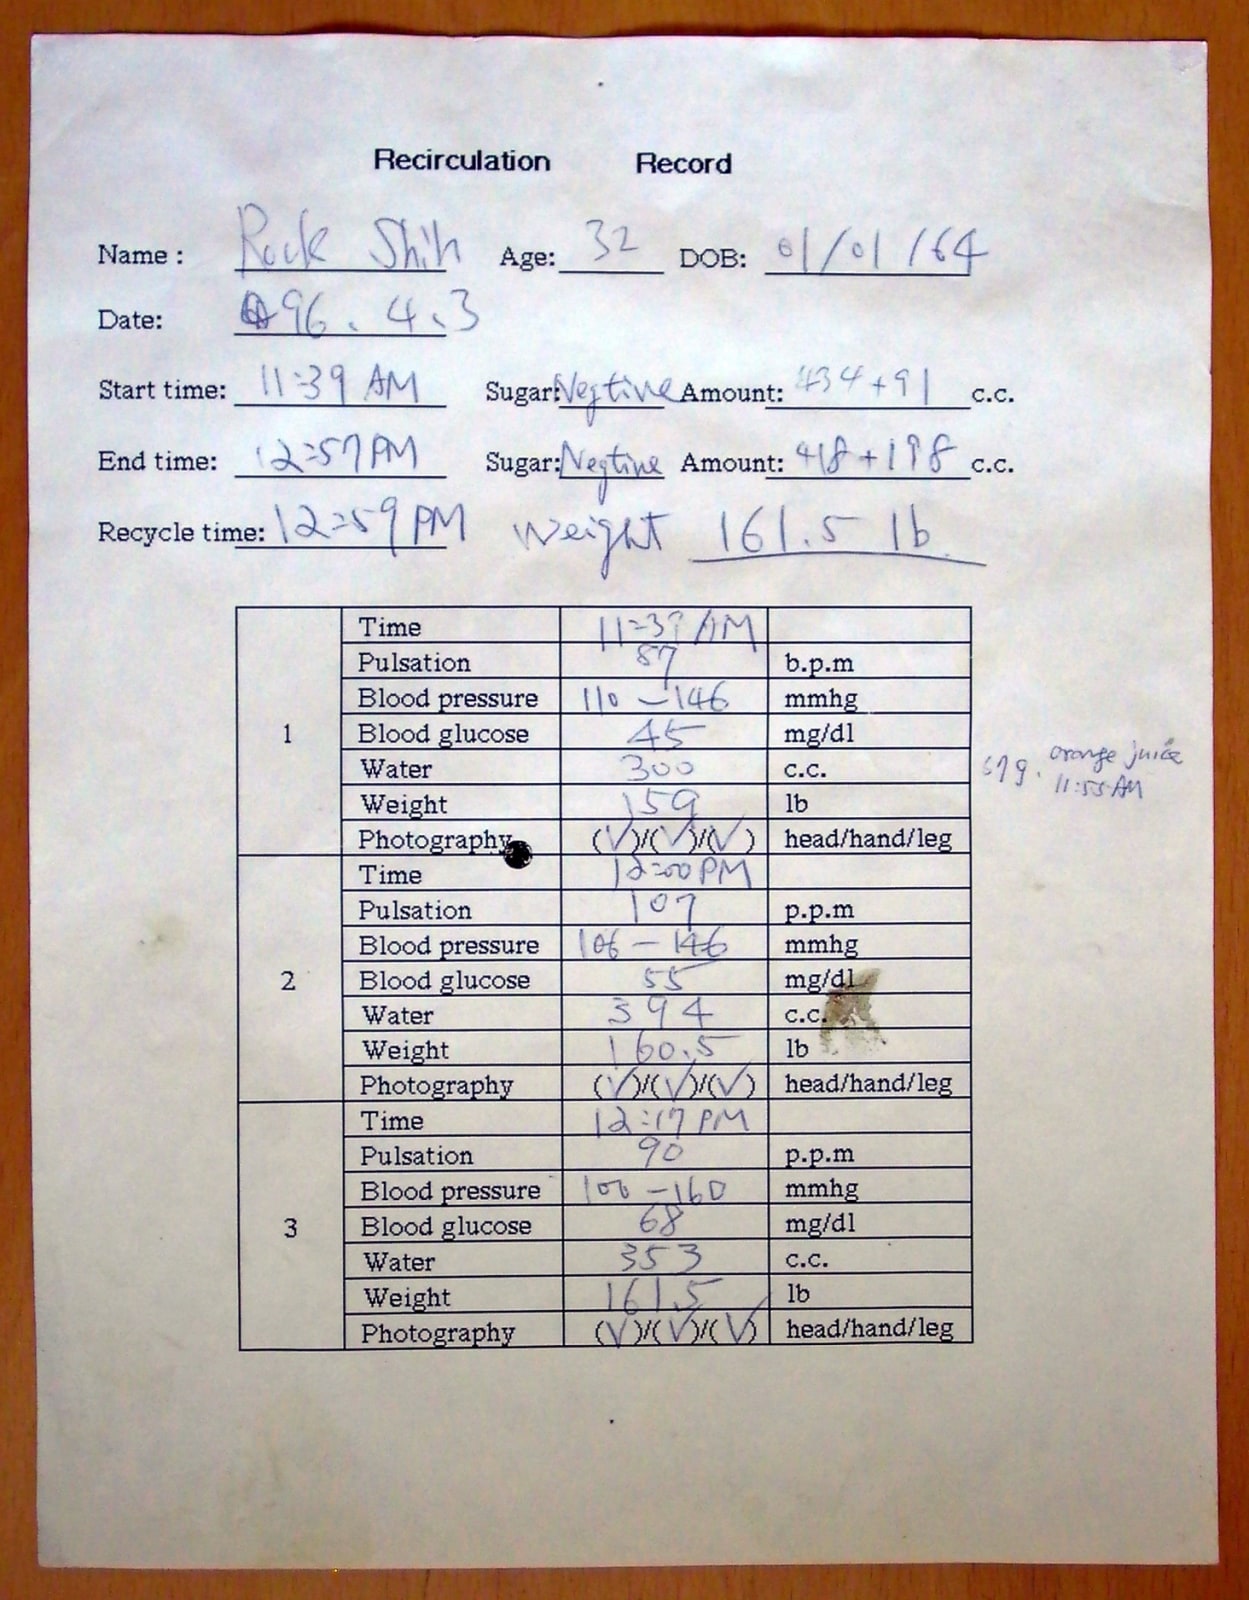 Recirculation Record
Name : Rock Shih Age: 32 DOB: 01/01/64
Date: 96. 4. 3
Start time: 11:39 AM Sugar: Negtive Amount: 434+91 c.c.
End time: 12:57 PM Sugar: Negtive Amount: 418+198 c.c.
Recycle time: 12:59 PM Weight 161.5 lb
1
Time 11:39 AM
Pulsation 87 b.p.m
Blood pressure 110 - 146 mmhg
Blood glucose 45 mg/dl
Water 300 c.c.
orange juice
11:55 AM
Weight 159 lb
Photography (V)/(V)/(V) head/hand/leg
2
Time 12:00 PM
Pulsation 107 p.p.m
Blood pressure 106 - 146 mmhg
Blood glucose 55 mg/dl
Water 394 c.c.
Weight 160.5 lb
Photography (V)/(V)/(V) head/hand/leg
3
Time 12:17 PM
Pulsation 90 p.p.m
Blood pressure 100 - 160 mmhg
Blood glucose 68 mg/dl
Water 353 c.c.
Weight 161.5 lb
Photography (V)/(V)/(V) head/hand/leg